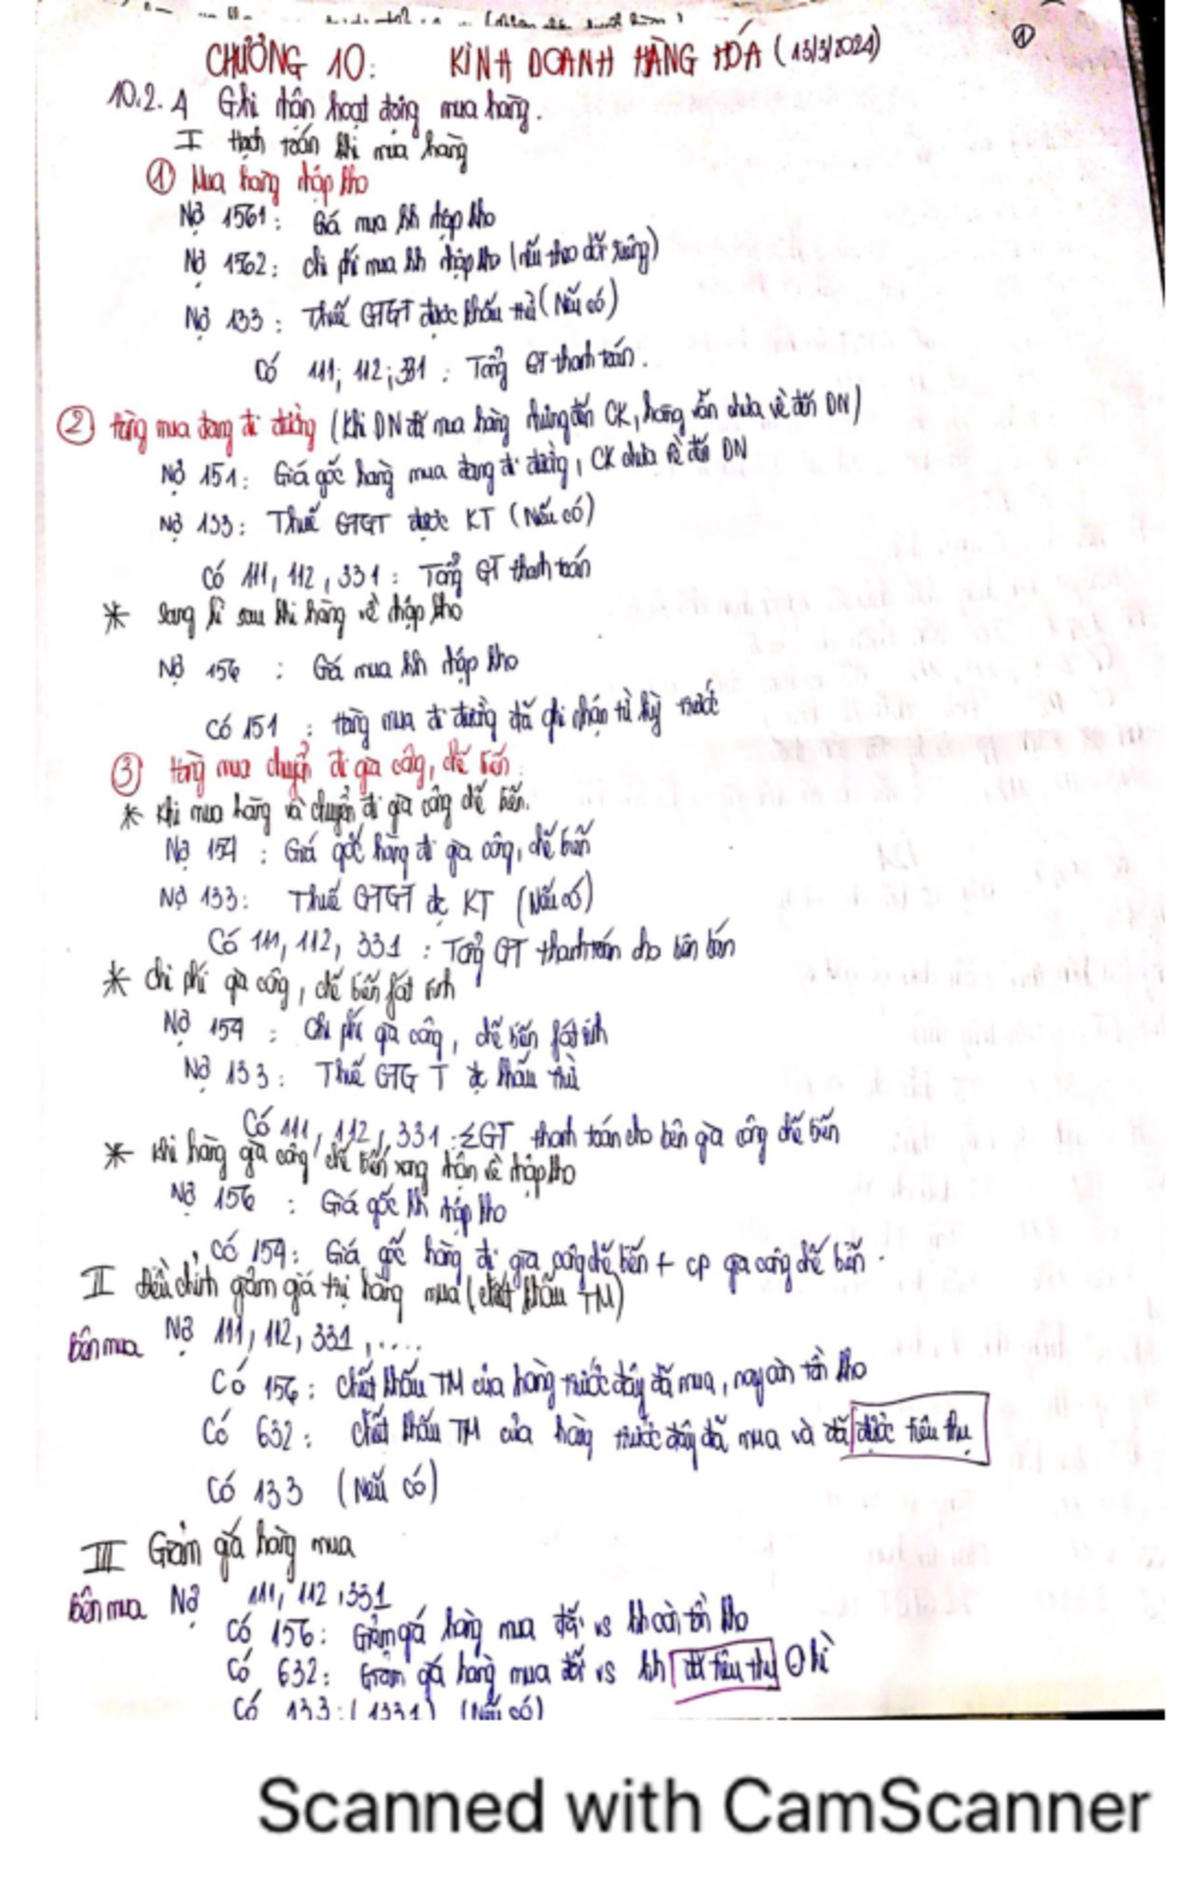 ①
CHƯƠNG 10: KINH DOANH HÀNG HÓA (13/3/2024)
10.2.1 Ghi nhận hoạt động mua hàng.
I Hạch toán khi mua hàng
① Mua hàng nhập kho
Nợ 1561: Giá mua hh nhập kho
Nợ 1562: chi phí mua hh nhập kho (nếu theo dõi riêng)
Nợ 133: Thuế GTGT được khấu trừ (Nếu có)
Có 111; 112; 331: Tổng GT thanh toán.
② Hàng mua đang đi đường (Khi DN đã mua hàng nhưng đến CK, hàng vẫn chưa về đến DN)
Nợ 151: Giá gốc hàng mua đang đi đường, CK chưa về đến DN
Nợ 133: Thuế GTGT được KT (Nếu có)
Có 111, 112, 331: Tổng GT thanh toán
* Sang kì sau khi hàng về nhập kho
Nợ 156 : Giá mua hh nhập kho
Có 151 : Hàng mua đi đường đã ghi nhận từ kỳ trước
③ Hàng mua chuyển đi gia công, chế biến
* Khi mua hàng và chuyển đi gia công chế biến.
Nợ 154 : Giá gốc hàng đi gia công, chế biến
Nợ 133: Thuế GTGT đc KT (Nếu có)
Có 111, 112, 331 : Tổng GT thanh toán cho bên bán
* Chi phí gia công, chế biến fát sinh
Nợ 154 : Chi phí gia công, chế biến fát sinh
Nợ 133: Thuế GTGT đc khấu trừ
Có 111, 112, 331: ΣGT thanh toán cho bên gia công chế biến
* Khi hàng gia công chế biến xong nhận về nhập kho
Nợ 156 : Giá gốc hh nhập kho
Có 154: Giá gốc hàng đi gia công chế biến + cp gia công chế biến.
II Điều chỉnh giảm giá trị hàng mua (chiết khấu TM)
Bên mua Nợ 111, 112, 331, ....
Có 156: chiết khấu TM của hàng trước đây đã mua, nay còn tồn kho
Có 632: chiết khấu TM của hàng trước đây đã mua và đã được tiêu thụ
Có 133 (Nếu có)
III Giảm giá hàng mua
Bên mua Nợ 111, 112, 331
Có 156: Giảm giá hàng mua đối vs hh còn tồn kho
Có 632: Giảm giá hàng mua đối vs hh đã tiêu thụ
Có 133: (1331) (Nếu có)
Scanned with CamScanner